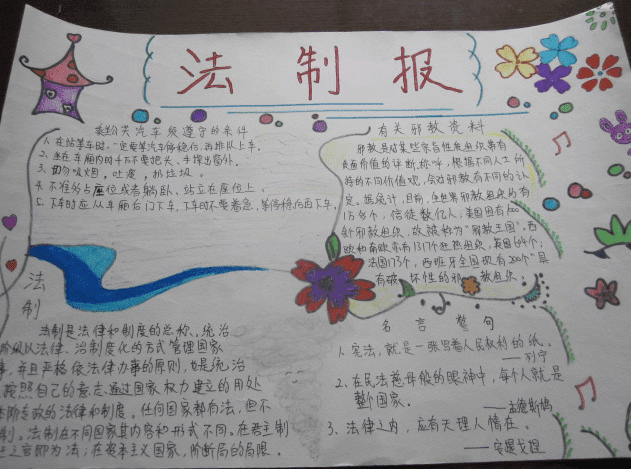 法制报
乘公共汽车须遵守的条件
1. 在站等车时,一定要等汽车停稳后,再排队上车。
2. 坐在车厢内时,千万不要把头、手探出窗外。
3. 切勿吸烟,吐痰,扔垃圾。
4. 不准多占座位或者躺卧、站立在座位上。
5. 下车时应从车厢后门下车,下车时不要着急,等停稳后再下车。
有关邪教资料
邪教是对某些宗教性质组织带有
负面价值的评断、称呼,根据不同人士所
持的不同价值观,会对邪教有不同的认
定。据统计,目前,全世界邪教组织约有
信徒数亿人,美国固有
余邪教组织,故被称为“邪教王国”,西
欧和南欧亦有1317个狂热组织,英国604个;
法国173个,西班牙全国现有200个“具
有破坏性的邪教组织;
法
制
法制是法律和制度的总称。统治
阶级以法律、治制度化的方式管理国家
事,并且严格依法办事的原则,也是统治
按照自己的意志、通过国家权力建立的用处
本阶专政的法律和制度。任何国家都有法,但不
制。法制在不同国家其内容和形式不同。在君主制
之言即为法;在资本主义国家,阶断局的局限。
名言警句
1. 宪法,就是一张写着人民权利的纸。
——列宁
2. 在民法慈母般的眼神中,每个人就是
整个国家。
——孟德斯鸠
3. 法律之内,应有天理人情在。
——安提戈涅